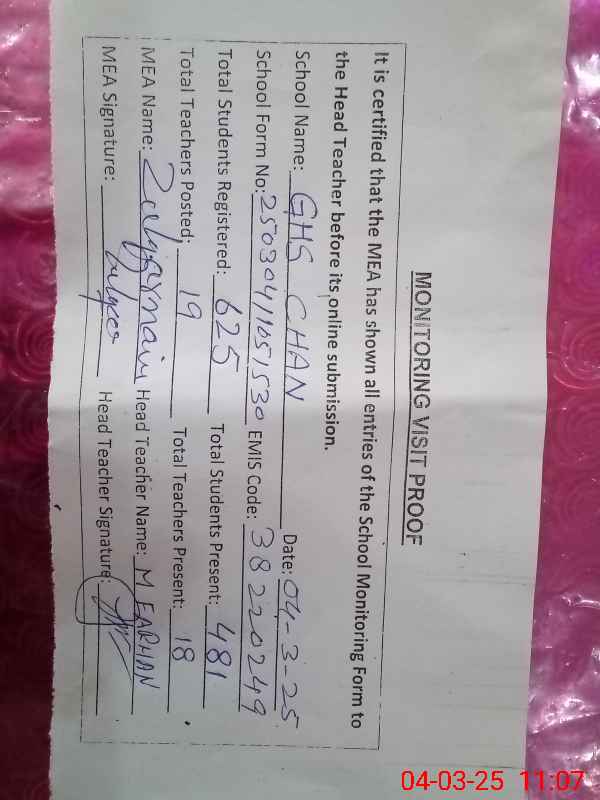 MONITORING VISIT PROOF
It is certified that the MEA has shown all entries of the School Monitoring Form to
the Head Teacher before its online submission.
School Name: GHS CHAN Date: 04-3-25
School Form No: 25030411051530 EMIS Code: 38220249
Total Students Registered: 625 Total Students Present: 481
Total Teachers Posted: 19 Total Teachers Present: 18
MEA Name: Head Teacher Name: M FARHAN
MEA Signature: Head Teacher Signature:
04-03-25 11:07